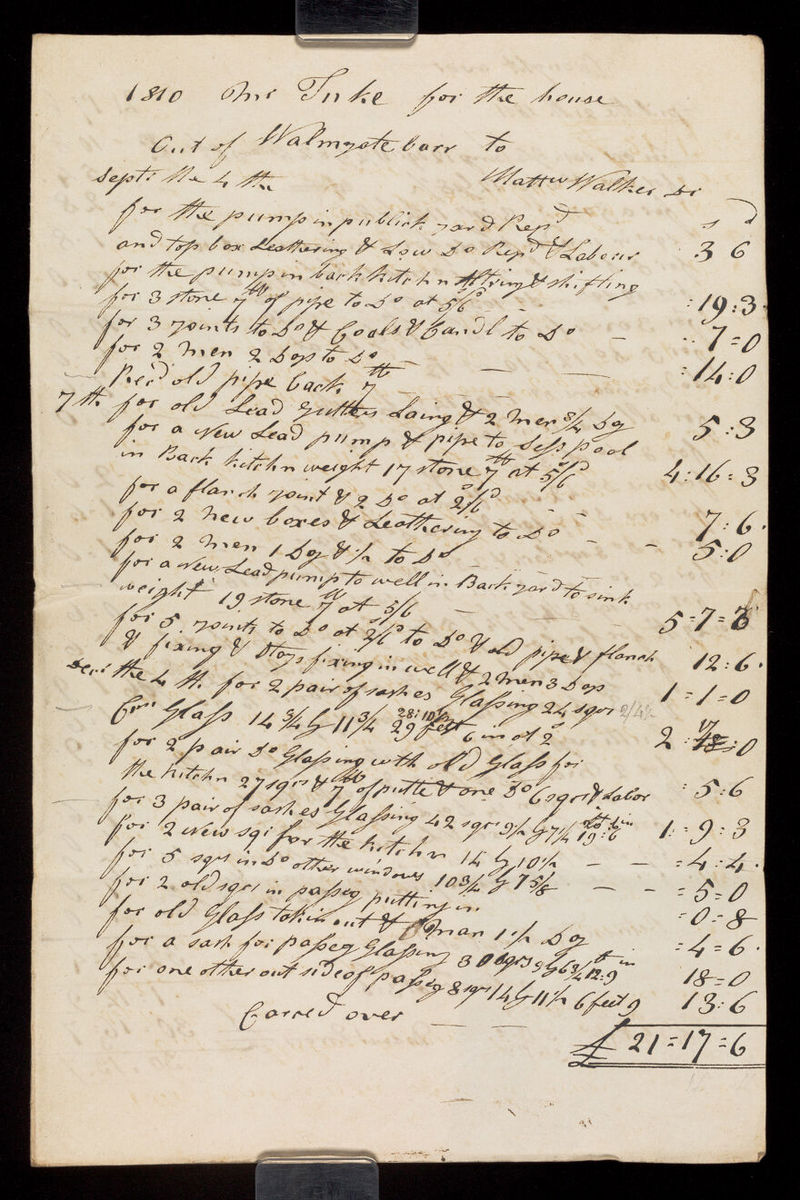 1810 Mr Tuke for the house
Out of Walmgate barr to
Mattw Walker Dr
Septr the 4 th
s d
for the pump in publick yard Repd
and top box Leathering & Low Do Repd & Labour 3 6
for the pump in back kitchn & shifting
for 3 stone 7 lb of pipe to Do at 5/6d - : 19 : 3
for 3 joints to Do & Coals & Candl to Do - : 7 = 0
for 2 men 2 Days to Do - - - : 14 : 0
Recd old pipe back 7 lb
7 th for old Lead gutters Laing & 2 men 3/4 Day 5 : 3
for a New Lead pump & pipe to Sess pool
in Back kitchn weight 17 stone 7 lb at 5/6d 4 : 16 = 3
for a flanch joint & 2 Do at 2/6d
for 2 new boxes & Leathering to Do - - 7 : 6
for 2 men 1 Day & 1/2 to Do - - 5 : 0
for a new Lead pump to well in Back yard to sink
weight 19 stone 7 lb at 5/6 - - - 5 = 7 = 3
for 5 joints to Do at 2/6d to Do & old pipe & flanch 12 : 6
& fixing & stays fixing in well & 2 men 3 Days 1 = 1 = 0
Decr the 4 th for 2 pair of sashes Glassing 24 sqrs 2/4½
Crn Glass 14 3/4 by 11 3/4 29 feet 6 in at 2s 2 : 17 : 0
28 : 10
for 2 pair Do Glassing with old Glass for
the kitchn 27 sqrs & 7 lb of putte & one Do 6 sqrs & Labor : 5 : 6
for 3 pair of sashes Glassing 42 sqrs 9½ by 7¼ 19 : 6 1 : = 9 : 3
for 2 New sqr for the kitchn 14 by 10½ - - = 4 : 4
for 5 sqrs in Do other windows 10 3/4 by 7 5/8 - - = 5 = 0
for 2 old sqrs in passeg putting in = 0 = 8
for old Glass takin out & 1 man 1½ Day = 4 = 6
for a sash for passeg Glassing 30 sqrs 9 by 6 3/4 12 : 9 18 = 0
for one other out side of passeg 8 sqrs 14 by 11½ 6 feet 9 13 : 6
Carred over - - £ 21 = 17 = 6